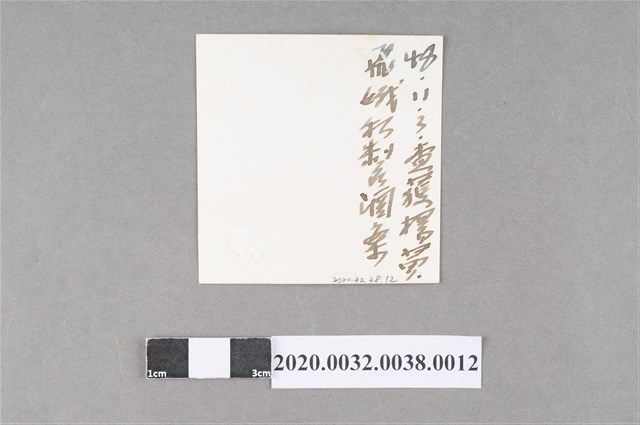 48.11.3.查獲楊黄
娥私制
酒案
2020.32.38.12
1cm
3cm
2020.0032.0038.0012